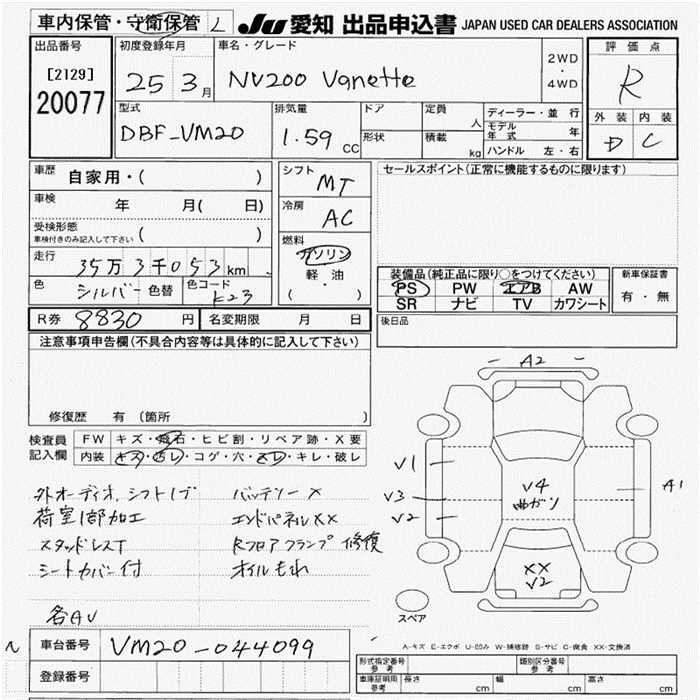 車内保管・守衛保管 L JU 愛知 出品申込書 JAPAN USED CAR DEALERS ASSOCIATION
出品番号 初度登録年月 車名・グレード 評価点
[2129] 25 3月 NV200 Vanette 2WD・4WD R
20077
型式 排気量 ドア 定員 人 ディーラー・並行 外装 内装
DBF-VM20 1.59 CC 形状 積載 kg モデル年式 年 D C
ハンドル 左・右
車歴 自家用・( ) シフト MT セールスポイント(正常に機能するものに限ります)
車検 年 月( 日) 冷房 AC
受検形態 ( )
車検付きのみ記入して下さい
走行 35万3千053km 燃料 ガソリン
軽・油
( ・ )
色 シルバー 色替 色コード K23
装備品(純正品に限り○をつけてください) 新車保証書
PS PW エアB AW 有・無
SR ナビ TV カワシート
R券 8830円 名変期限 月 日 後日品
注意事項申告欄(不具合内容等は具体的に記入して下さい)
修復歴 有(箇所 )
検査員 FW キズ・飛石・ヒビ割・リペア跡・X要
記入欄 内装 キズ・汚レ・コゲ・穴・スレ・キレ・破レ
外オーディオ、シフト1ブ バッテリーX
荷室1部加工 エンドパネルXX
スタッドレスT Rフロアクランプ修復
シートカバー付 オイルもれ
各AU
A2
V1
V3
V2
V4
曲がり
A1
XX
V2
スペア
車台番号 VM20-044099
登録番号
A-キズ E-エクボ U-凹み W-補修跡 S-サビ C-腐食 XX-交換済
形式指定番号 参考 類別区分番号 参考
車庫証明用 参考 長さ cm 幅 cm 高さ cm